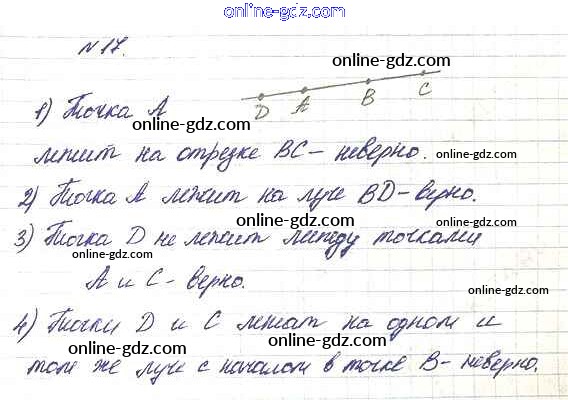 online-gdz.com
№17.
online-gdz.com
D A B C
1) Точка А
online-gdz.com
лежит на отрезке ВС – неверно. online-gdz.com
2) Точка А лежит на луче BD – верно.
online-gdz.com online-gdz.com
3) Точка D не лежит между точками
online-gdz.com
А и С – верно.
online-gdz.com
4) Точки D и С лежат на одном и
online-gdz.com online-gdz.com
том же луче с началом в точке В – неверно.
online-gdz.com